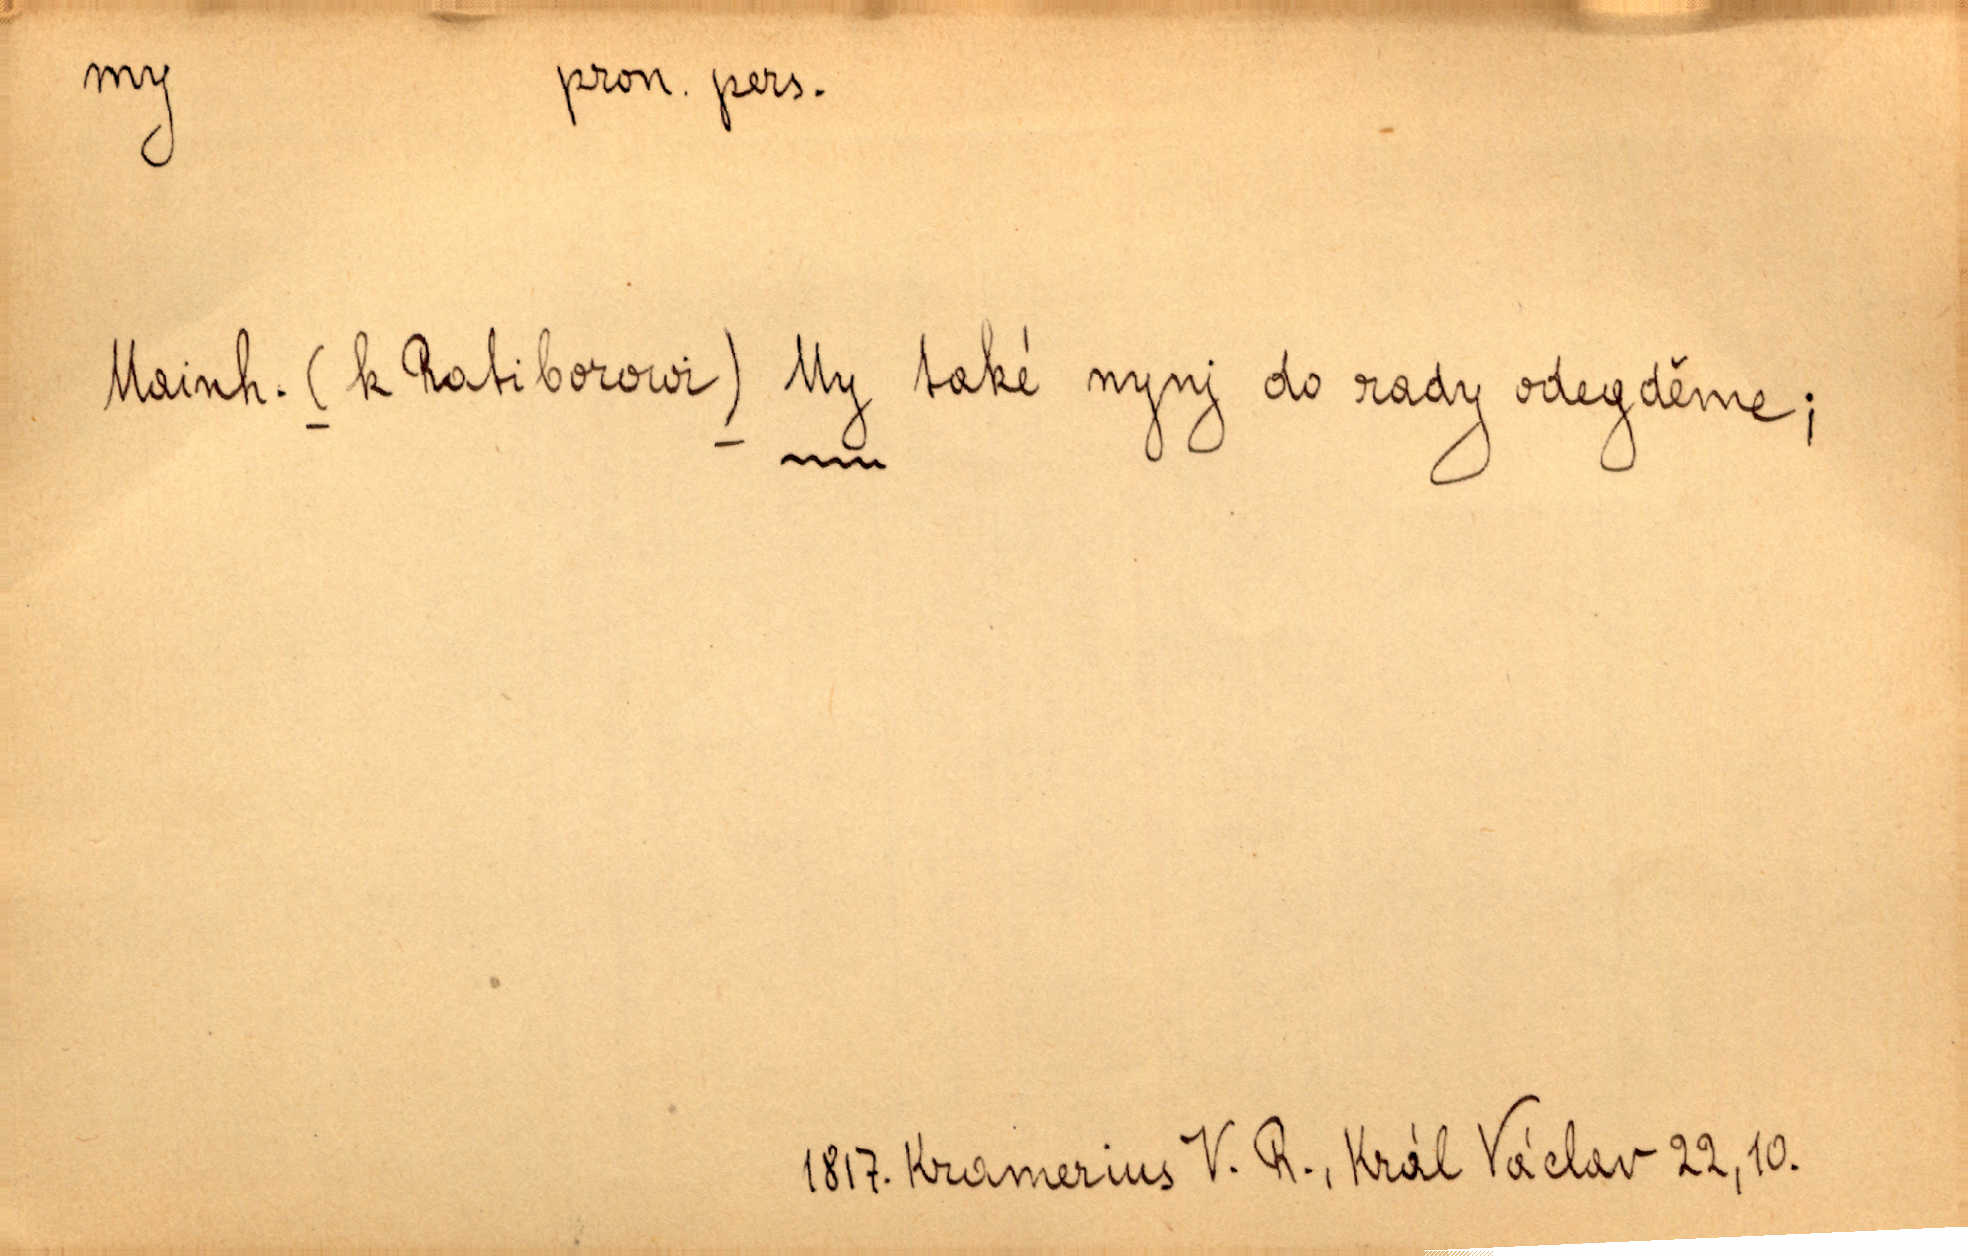 my pron. pers.
Mainh. (k Ratiborowi) My také nynj do rady odegděme;
1817. Kramerius V. R., Král Václav 22, 10.